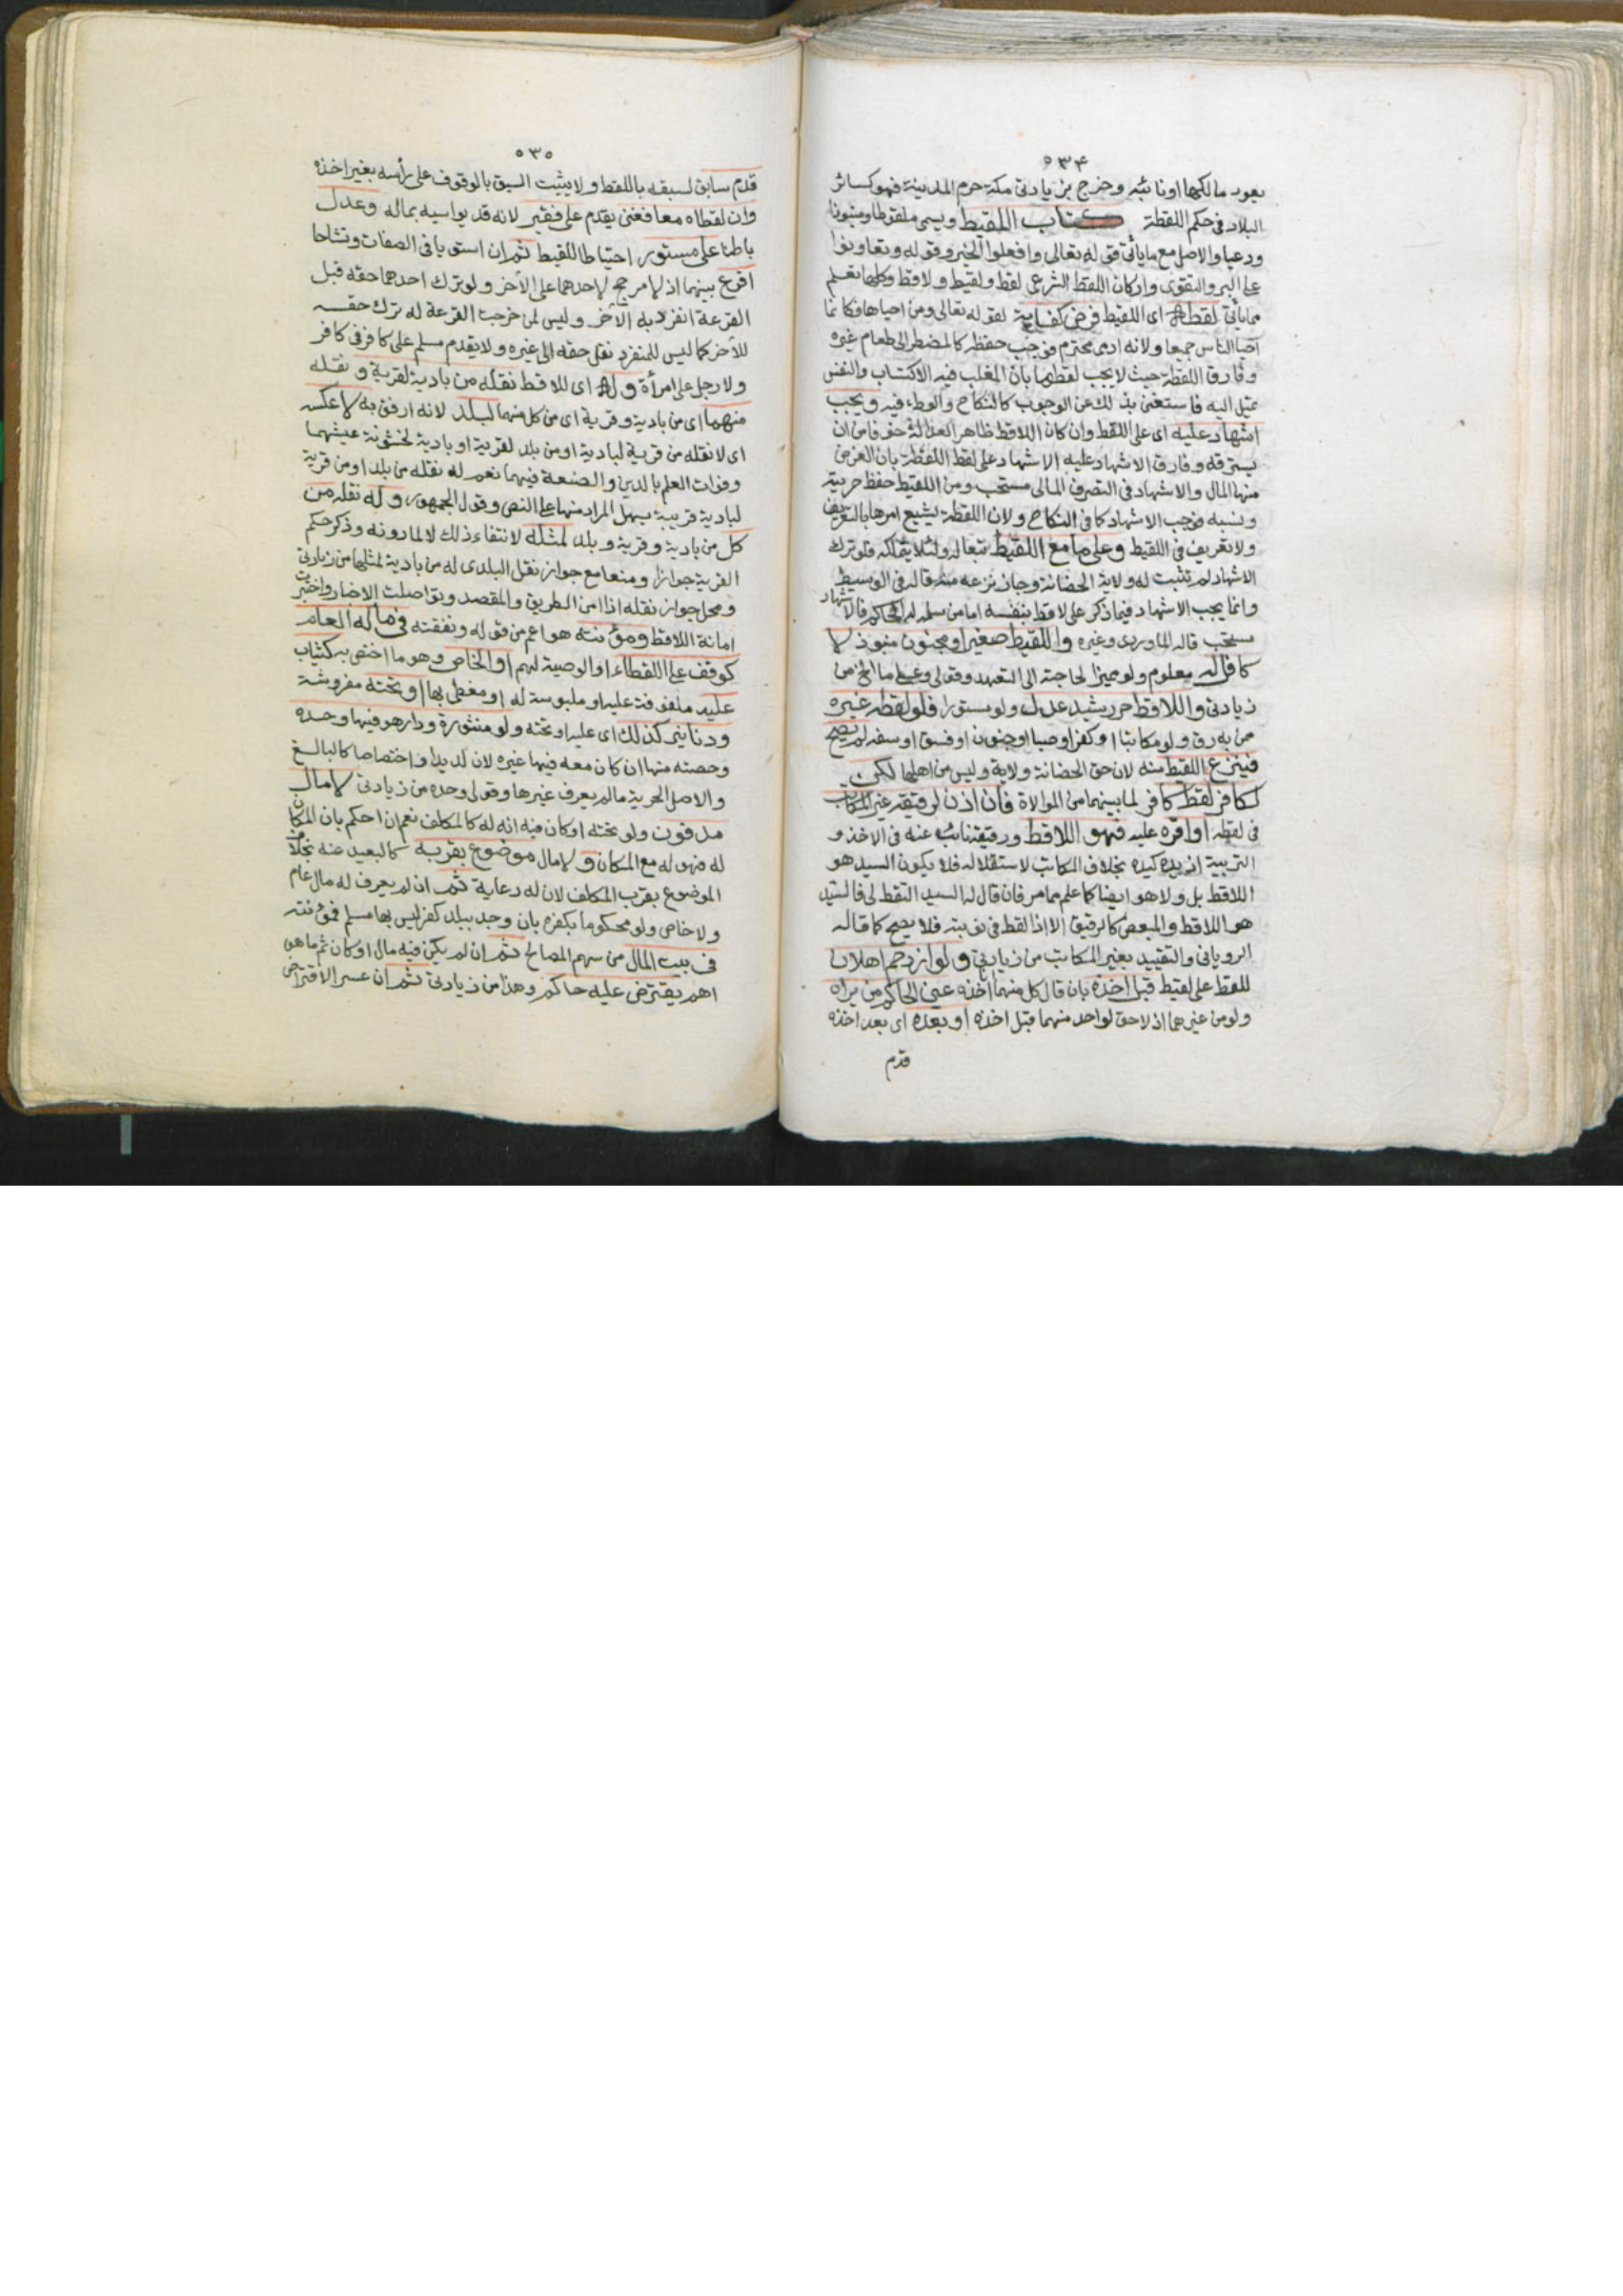 ٥٣٤
يعود مالكها او نائبه وخرج بزيادتي مكة حرم المدينة فهو كسائر
البلاد في حكم اللقطة كتاب اللقيط ويسمى ملقوطا ومنبوذا
ودعيا والاصل مع ما يأتي قوله تعالى وافعلوا الخير وقوله وتعاونوا
على البر والتقوى واركان اللقط الشرعي لقط ولقيط ولاقط وكلها تعلم
مما يأتي لقطه اي اللقيط فرض كفاية لقوله تعالى ومن احياها فكانما
احيا الناس جميعا ولانه ادمى محترم فوجب حفظه كالمضطر الى طعام غيره
وفارق اللقطة حيث لا يجب لقطها بان المغلب فيه الاكتساب والنفس
تميل اليه فاستغنى بذلك عن الوجوب كالنكاح والوطء فيه ويجب
اشهاد عليه اي على اللقط وان كان اللاقط ظاهر العدالة خوفا من ان
يسترقه وفارق الاشهاد عليه الاشهاد على لقط اللقطة بان الغرض
منها المال والاشهاد في التصرف المالى مستحب ومن اللقيط حفظ حريته
ونسبه فوجب الاشهاد كما في النكاح ولان اللقطة يشيع امرها بالتعريف
ولا تعريف في اللقيط وعلى ما مع اللقيط تبعا له ولئلا يتملكه فلو ترك
الاشهاد لم تثبت له ولاية الحضانة وجاز نزعه منه قاله في الوسيط
وانما يجب الاشهاد فيما ذكر على لاقط بنفسه اما من سلمه له الحاكم فالاشهاد
مستحب قاله الماوردى وغيره واللقيط صغير او مجنون منبوذ لا
كافل له معلوم ولو مميزا لحاجته الى التعهد وقولى وعلى ما الخ من
زيادتى واللاقط حر رشيد عدل ولو مستورا فلو لقطه غيره
ممن به رق ولو مكاتبا او كفر او صبا او جنون او فسق او سفه لم يصح
فينزع اللقيط منه لان حق الحضانة ولاية وليس من اهلها لكن
لكافر لقط كافر لما بينهما من الموالاة فان اذن لرقيقه غير المكاتب
في لقطه او اقره عليه فهو اللاقط ورقيقه نائب عنه في الاخذ و
التربية اذ يده كيده بخلاف المكاتب لاستقلاله فلا يكون السيد هو
اللاقط بل ولا هو ايضا كما علم مما مر فان قال له السيد التقط لى فالسيد
هو اللاقط والمبعض كالرقيق الا اذا لقط في نوبته فلا يصح كما قاله
الرويانى والتقييد بغير المكاتب من زيادتي ولو ازدحم اهلان
للقط على لقيط قبل اخذه بان قال كل منهما اخذه عين الحاكم من يراه
ولو من غيرهما اذ لا حق لواحد منهما قبل اخذه او بعده اي بعد اخذه
قدم
٥٣٥
قدم سابق لسبقه باللقط ولا يثبت السبق بالوقوف على رأسه بغير اخذه
وان لقطاه معا فغنى يقدم على فقير لانه قد يواسيه بماله وعدل
باطنا على مستور احتياطا للقيط ثم ان استويا في الصفات وتشاحا
اقرع بينهما اذ لا مرجح لاحدهما على الآخر ولو ترك احدهما حقه قبل
القرعة انفرد به الآخر وليس لمن خرجت القرعة له ترك حقه
للآخر كما ليس للمنفرد نقل حقه الى غيره ولا يقدم مسلم على كافر في كافر
ولا رجل على امرأة وله اي للاقط نقله من بادية لقرية ونقله
منهما اي من بادية وقرية اي من كل منهما لبلد لانه ارفق به لا عكسه
اى لا نقله من قرية لبادية او من بلد لقرية او بادية لخشونة عيشهما
وفوات العلم بالدين والصنعة فيهما نعم له نقله من بلد او من قرية
لبادية قريبة يسهل المراد منها على النص وقول الجمهور وله نقله من
كل من بادية وقرية وبلد لمثله لانتفاء ذلك لا لما دونه وذكر حكم
القرية جوازا ومنعا مع جواز نقل البلدى له من بادية لمثلها من زيادتى
ومحل جواز نقله اذا امن الطريق والمقصد وتواصلت الاخبار واختبرت
امانة اللاقط ومؤنته هو اعم من قوله ونفقته في ماله العام
كوقف على اللقطاء او الوصية لهم او الخاص وهو ما اختص به كثياب
عليه ملفوفة عليه او ملبوسة له او مغطى بها او تحته مفروشة
ودنانير كذلك اي عليه او تحته ولو منثورة ودار هو فيها وحده
وحصته منها ان كان معه فيها غيره لان له يدا واختصاصا كالبالغ
والاصل الحرية ما لم يعرف غيرها وقولى وحده من زيادتى لا مال
مدفون ولو تحته او كان فيه انه له كالمكلف نعم ان احكم بان المكان
له فهو له مع المكان ولا مال موضوع بقربه كالبعيد عنه بخلاف
الموضوع بقرب المكلف لان له رعاية ثم ان لم يعرف له مال عام
ولا خاص ولو محكوما بكفره بان وجد ببلد كفر ليس بها مسلم فمؤنته
في بيت المال من سهم المصالح ثم ان لم يكن فيه مال او كان ثم ما هو
اهم يقترض عليه حاكم وهذا من زيادتى ثم ان عسر الاقتراض